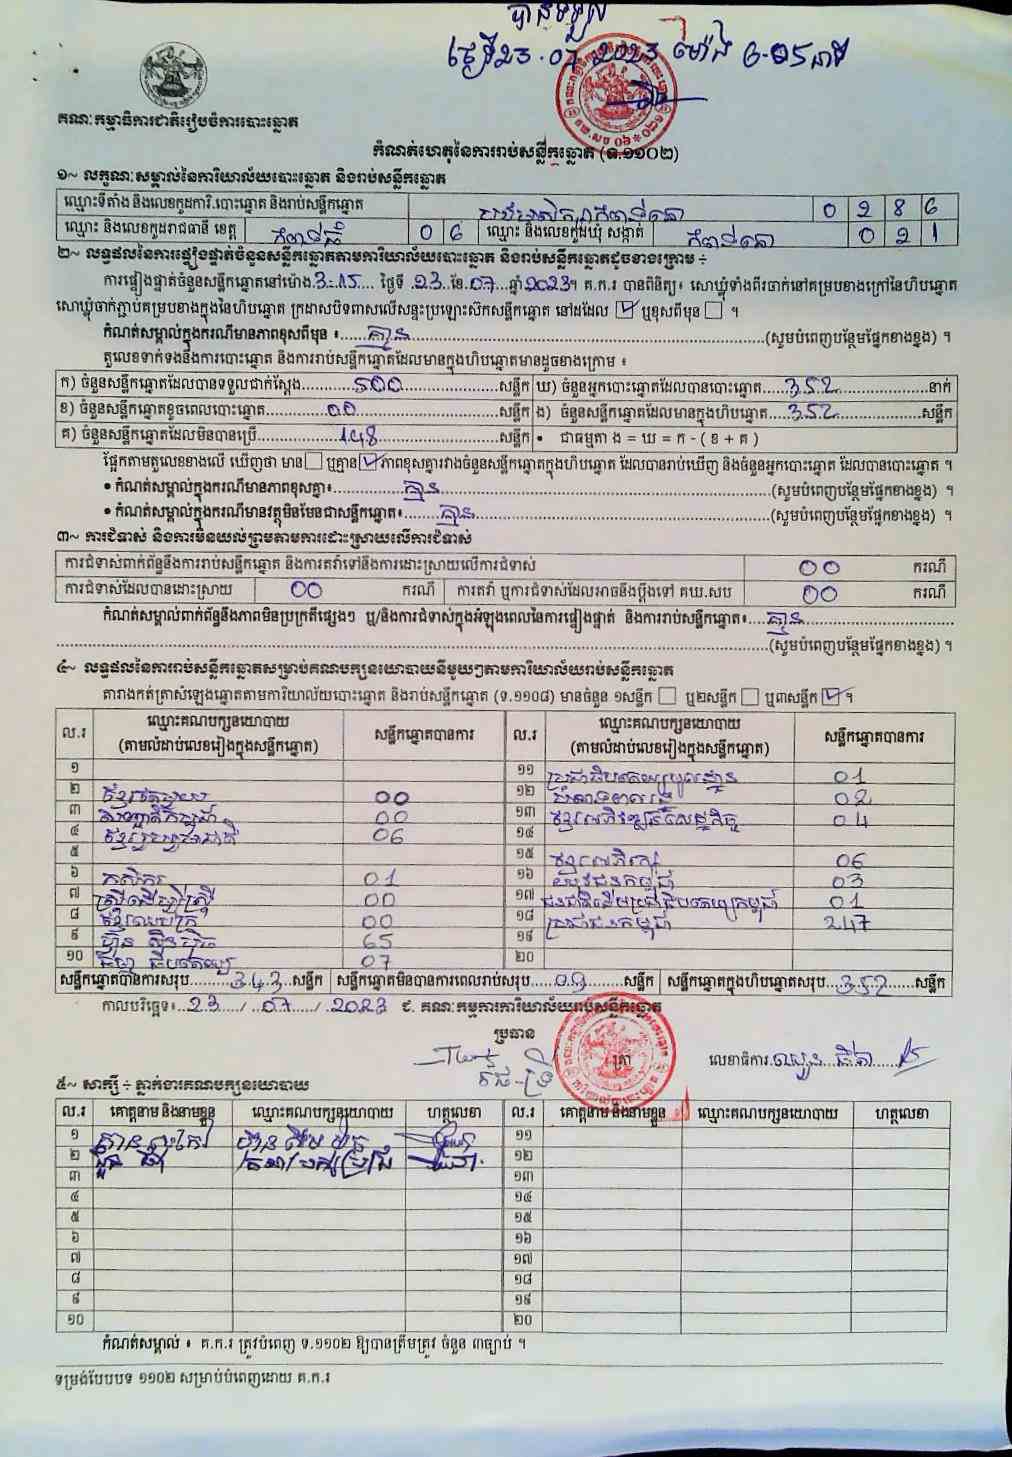 បានទទួល
ថ្ងៃទី23.07.2023 ម៉ោង 6-15នាទី
គណៈកម្មាធិការជាតិរៀបចំការបោះឆ្នោត
កំណត់ហេតុនៃការរាប់សន្លឹកឆ្នោត (ទ.១១០២)
១~ លក្ខណៈសម្គាល់នៃការិយាល័យបោះឆ្នោត និងរាប់សន្លឹកឆ្នោត
ឈ្មោះទីតាំង និងលេខកូដការិ.បោះឆ្នោត និងរាប់សន្លឹកឆ្នោត 0 2 8 6
ឈ្មោះ និងលេខកូដរាជធានី ខេត្ត កំពង់ធំ 0 6 ឈ្មោះ និងលេខកូដឃុំ សង្កាត់ 0 2 1
២~ លទ្ធផលនៃការផ្ទៀងផ្ទាត់ចំនួនសន្លឹកឆ្នោតតាមការិយាល័យបោះឆ្នោត និងរាប់សន្លឹកឆ្នោតដូចខាងក្រោម ÷
ការផ្ទៀងផ្ទាត់ចំនួនសន្លឹកឆ្នោតនៅម៉ោង 3:15 ថ្ងៃទី 23 ខែ 07 ឆ្នាំ 2023។ គ.ក.រ បានពិនិត្យ៖ សោឃ្លុំទាំងពីរចាក់នៅគម្របខាងក្រៅនៃហិបឆ្នោត
សោឃ្លុំចាក់ភ្ជាប់គម្របខាងក្នុងនៃហិបឆ្នោត ក្រដាសបិទពាសលើសន្ទះប្រឡោះស៊កសន្លឹកឆ្នោត នៅដដែល ☑ ឬខុសពីមុន ☐ ។
កំណត់សម្គាល់ក្នុងករណីមានភាពខុសពីមុន ៖ គ្មាន (សូមបំពេញបន្ថែមផ្នែកខាងខ្នង) ។
តួលេខទាក់ទងនឹងការបោះឆ្នោត និងការរាប់សន្លឹកឆ្នោតដែលមានក្នុងហិបឆ្នោតមានដូចខាងក្រោម ៖
ក) ចំនួនសន្លឹកឆ្នោតដែលបានទទួលជាក់ស្តែង 500 សន្លឹក ឃ) ចំនួនអ្នកបោះឆ្នោតដែលបានបោះឆ្នោត 352 នាក់
ខ) ចំនួនសន្លឹកឆ្នោតខូចពេលបោះឆ្នោត 00 សន្លឹក ង) ចំនួនសន្លឹកឆ្នោតដែលមានក្នុងហិបឆ្នោត 352 សន្លឹក
គ) ចំនួនសន្លឹកឆ្នោតដែលមិនបានប្រើ 148 សន្លឹក • ជាធម្មតា ង = ឃ = ក - ( ខ + គ )
ផ្អែកតាមតួលេខខាងលើ ឃើញថា មាន ☐ ឬគ្មាន ☑ ភាពខុសគ្នារវាងចំនួនសន្លឹកឆ្នោតក្នុងហិបឆ្នោត ដែលបានរាប់ឃើញ និងចំនួនអ្នកបោះឆ្នោត ដែលបានបោះឆ្នោត ។
• កំណត់សម្គាល់ក្នុងករណីមានភាពខុសគ្នា៖ គ្មាន (សូមបំពេញបន្ថែមផ្នែកខាងខ្នង) ។
• កំណត់សម្គាល់ក្នុងករណីមានវត្ថុមិនមែនជាសន្លឹកឆ្នោត៖ គ្មាន (សូមបំពេញបន្ថែមផ្នែកខាងខ្នង) ។
៣~ ការជំទាស់ និងការមិនយល់ព្រមតាមការដោះស្រាយលើការជំទាស់
ការជំទាស់ពាក់ព័ន្ធនឹងការរាប់សន្លឹកឆ្នោត និងការតវ៉ាទៅនឹងការដោះស្រាយលើការជំទាស់ 00 ករណី
ការជំទាស់ដែលបានដោះស្រាយ 00 ករណី ការតវ៉ា ឬការជំទាស់ដែលអាចនឹងប្តឹងទៅ គឃ.សប 00 ករណី
កំណត់សម្គាល់ពាក់ព័ន្ធនឹងភាពមិនប្រក្រតីផ្សេងៗ ឬ/និងការជំទាស់ក្នុងអំឡុងពេលនៃការផ្ទៀងផ្ទាត់ និងការរាប់សន្លឹកឆ្នោត៖ គ្មាន
(សូមបំពេញបន្ថែមផ្នែកខាងខ្នង) ។
៤~ លទ្ធផលនៃការរាប់សន្លឹកឆ្នោតសម្រាប់គណបក្សនយោបាយនីមួយៗតាមការិយាល័យរាប់សន្លឹកឆ្នោត
តារាងកត់ត្រាសំឡេងឆ្នោតតាមការិយាល័យបោះឆ្នោត និងរាប់សន្លឹកឆ្នោត (ទ.១១០៨) មានចំនួន ១សន្លឹក ☐ ឬ២សន្លឹក ☐ ឬ៣សន្លឹក ☑ ។
ល.រ ឈ្មោះគណបក្សនយោបាយ (តាមលំដាប់លេខរៀងក្នុងសន្លឹកឆ្នោត) សន្លឹកឆ្នោតបានការ ល.រ ឈ្មោះគណបក្សនយោបាយ (តាមលំដាប់លេខរៀងក្នុងសន្លឹកឆ្នោត) សន្លឹកឆ្នោតបានការ
១ ១១ ប្រជាធិបតេយ្យមូលដ្ឋាន 01
២ 00 ១២ 02
៣ 00 ១៣ ខ្មែរអភិវឌ្ឍន៍សេដ្ឋកិច្ច 04
៤ 06 ១៤
៥ ១៥ 06
៦ កសិករ 01 ១៦ យុវជនកម្ពុជា 03
៧ ស្ត្រីដើម្បីស្ត្រី 00 ១៧ ជនជាតិដើមប្រជាធិបតេយ្យកម្ពុជា 01
៨ 00 ១៨ ប្រជាជនកម្ពុជា 247
៩ 65 ១៩
១០ 07 ២០
សន្លឹកឆ្នោតបានការសរុប 343 សន្លឹក សន្លឹកឆ្នោតមិនបានការពេលរាប់សរុប 09 សន្លឹក សន្លឹកឆ្នោតក្នុងហិបឆ្នោតសរុប 352 សន្លឹក
កាលបរិច្ឆេទ៖ 23 / 07 / 2023 ៩. គណៈកម្មការការិយាល័យរាប់សន្លឹកឆ្នោត
ប្រធាន
ត្រា
លេខាធិការ
៥~ សាក្សី ÷ ភ្នាក់ងារគណបក្សនយោបាយ
ល.រ គោត្តនាម និងនាមខ្លួន ឈ្មោះគណបក្សនយោបាយ ហត្ថលេខា ល.រ គោត្តនាម និងនាមខ្លួន ឈ្មោះគណបក្សនយោបាយ ហត្ថលេខា
១ ១១
២ ១២
៣ ១៣
៤ ១៤
៥ ១៥
៦ ១៦
៧ ១៧
៨ ១៨
៩ ១៩
១០ ២០
កំណត់សម្គាល់ ៖ គ.ក.រ ត្រូវបំពេញ ទ.១១០២ ឱ្យបានត្រឹមត្រូវ ចំនួន ៣ច្បាប់ ។
ទម្រង់បែបបទ ១១០២ សម្រាប់បំពេញដោយ គ.ក.រ